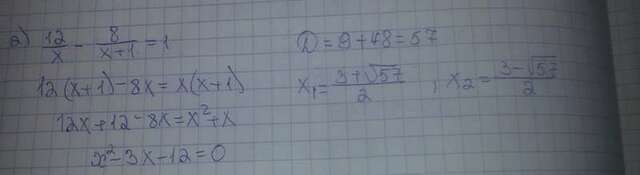 а) 12/x - 8/(x+1) = 1
12(x+1) - 8x = x(x+1)
12x + 12 - 8x = x² + x
x² - 3x - 12 = 0
D = 9 + 48 = 57
x₁ = (3+√57)/2 , x₂ = (3-√57)/2